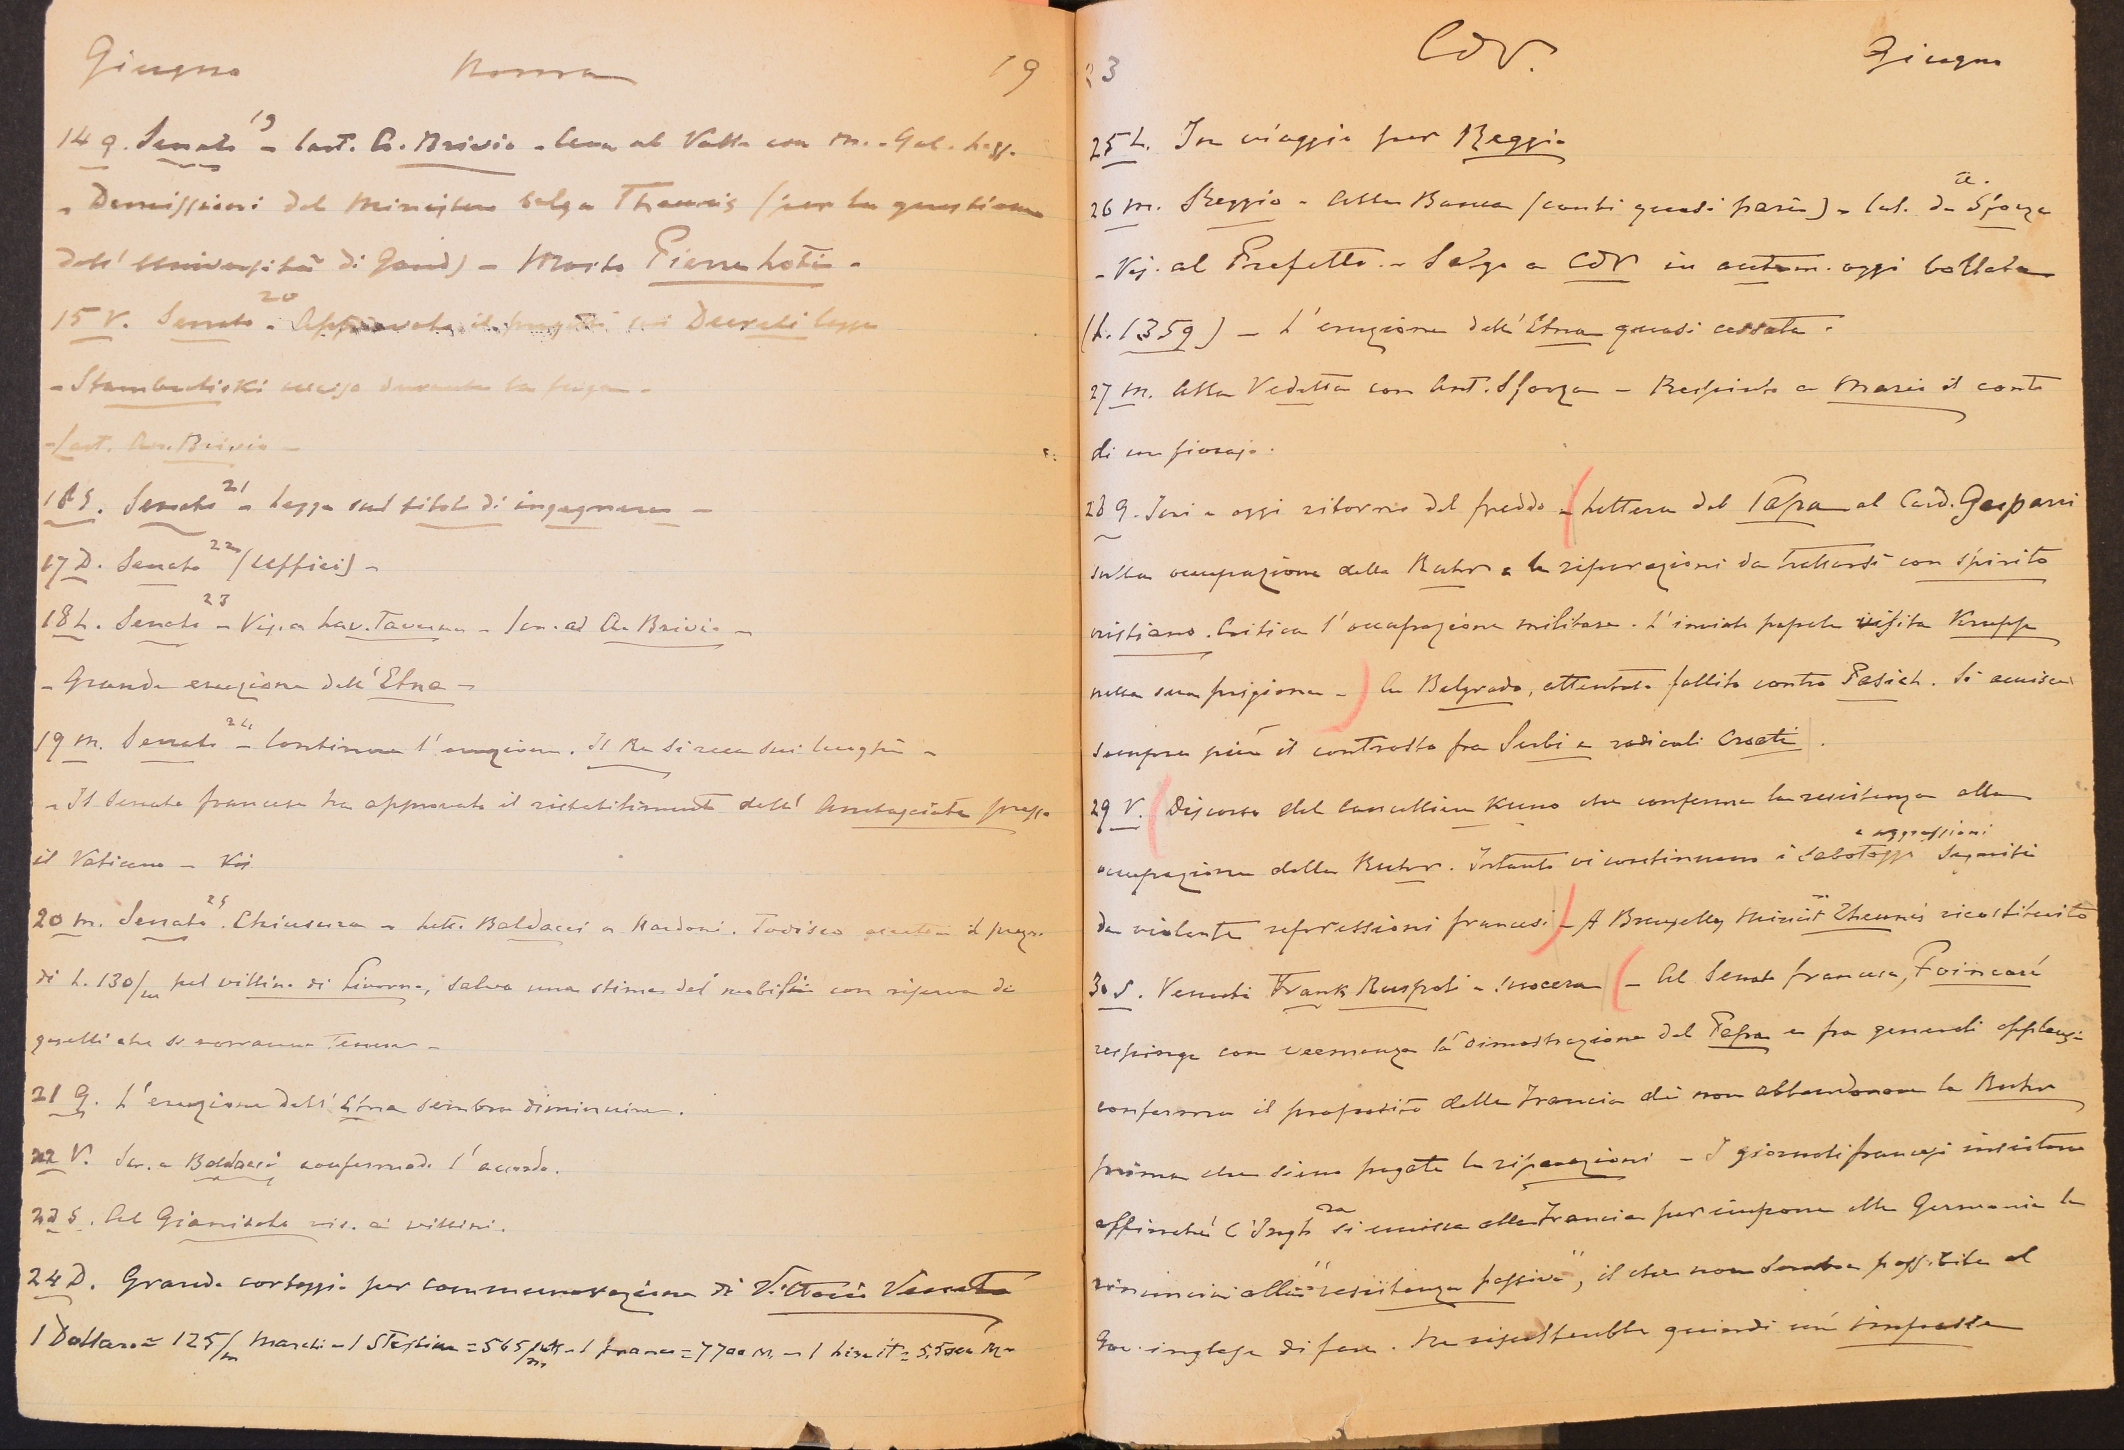 Giugno Roma 19
14 G. Senato 19 - Cart. A. Brivio - Cena al Valle con M. - Gal. Legg.
- Demissioni del Ministero belga Theunis (per la questione
dell'Università di Gand) - Morto Pierre Loti -
15 V. Senato 20 - Approvato il Decreti legge
- Stambuliski ucciso durante la fuga -
- Cart. An. Brivio -
16 S. Senato 21 - Legge sul titolo di ingegnere -
17 D. Senato 22 (Uffici) -
18 L. Senato 23 - Vis. a Lav. Taverna - Scr. ad A. Brivio -
- Grande eruzione dell'Etna -
19 M. Senato 24 - Continua l'eruzione. Il Re si reca sui luoghi -
- Il Senato francese ha approvato il ristabilimento dell'Ambasciata presso
il Vaticano - Vis
20 M. Senato 25. Chiusura - Lett. Baldacci a Nardoni. Todisco accetta il prezzo
di L. 130/m pel villino di Livorno, salvo una stima del mobilio con riserva di
quelli che si vorranno tenere -
21 G. L'eruzione dell'Etna sembra diminuire.
22 V. Scr. a Baldacci confermado l'accordo.
23 S. Al Gianicolo vis. ai villini.
24 D. Grande corteggio per commemorazione di Vittorio Veneto
1 Dollaro = 125/m marchi - 1 Sterlina = 565/m - 1 franco = 7700 M. - 1 Lira it = 5,500 M -
23 CdV. Giugno
25 L. In viaggio per Reggio
26 M. Reggio - Alla Banca (conti quasi pari) - Col. da A. Sforza
- Vis. al Prefetto - Salgo a CdV in autom. oggi bollata
(L. 1359) - L'eruzione dell'Etna quasi cessata -
27 M. Alla Vedetta con Ant. Sforza - Respinto a Mario il conto
di un fioraio.
28 G. Ieri e oggi ritorno del freddo - (Lettera del Papa al Card. Gasparri
sulla occupazione della Ruhr e le riparazioni da trattarsi con spirito
cristiano. Critica l'occupazione militare. L'inviato papale visita Krupp
nella sua prigione -) A Belgrado, attentato fallito contro Pasich. Si acuisce
sempre più il contrasto fra Serbi e radicali Croati.
29 V. (Discorso del Cancelliere Kuno che conferma la resistenza alla
occupazione della Ruhr. Intanto vi continuano i sabotaggi e aggressioni seguiti
da violente repressioni francesi) - A Bruxelles Minist. Theunis ricostituito
30 S. Venuti Frank Ruspoli e suocera (- Al Senato francese, Poincaré
respinge con veemenza la dimostrazione del Papa e fra generali applausi
conferma il proposito della Francia di non abbandonare la Ruhr
prima che sieno pagate le riparazioni - I giornali francesi insistono
affinché l'Inghra si unisca alla Francia per imporre alla Germania la
rinuncia alla "resistenza passiva", il che non sembra possibile al
Gov. inglese di fare. Ne risulterebbe quindi un'impasse